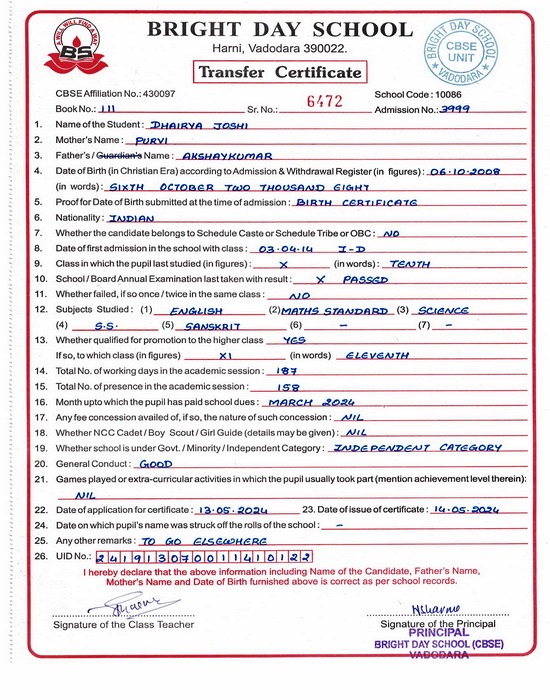 A WILL WILL FIND A WAY
BS
BRIGHT DAY SCHOOL
Harni, Vadodara 390022.
Transfer Certificate
BRIGHT DAY SCHOOL
CBSE
UNIT
VADODARA
CBSE Affiliation No.: 430097 School Code : 10086
Book No.: 111 Sr. No.: 6472 Admission No.: 3999
1. Name of the Student : DHAIRYA JOSHI
2. Mother's Name : PURVI
3. Father's / Guardian's Name : AKSHAYKUMAR
4. Date of Birth (in Christian Era) according to Admission & Withdrawal Register (in figures) : 06.10.2008
(in words) : SIXTH OCTOBER TWO THOUSAND EIGHT
5. Proof for Date of Birth submitted at the time of admission : BIRTH CERTIFICATE
6. Nationality : INDIAN
7. Whether the candidate belongs to Schedule Caste or Schedule Tribe or OBC : NO
8. Date of first admission in the school with class : 03.04.14 I-D
9. Class in which the pupil last studied (in figures) : X (in words) : TENTH
10. School / Board Annual Examination last taken with result : X PASSED
11. Whether failed, if so once / twice in the same class : NO
12. Subjects Studied : (1) ENGLISH (2) MATHS STANDARD (3) SCIENCE
(4) S.S. (5) SANSKRIT (6) - (7) -
13. Whether qualified for promotion to the higher class YES
If so, to which class (in figures) XI (in words) ELEVENTH
14. Total No. of working days in the academic session : 187
15. Total No. of presence in the academic session : 158
16. Month upto which the pupil has paid school dues : MARCH 2024
17. Any fee concession availed of, if so, the nature of such concession : NIL
18. Whether NCC Cadet / Boy Scout / Girl Guide (details may be given) : NIL
19. Whether school is under Govt. / Minority / Independent Category : INDEPENDENT CATEGORY
20. General Conduct : GOOD
21. Games played or extra-curricular activities in which the pupil usually took part (mention achievement level therein):
NIL
22. Date of application for certificate : 13.05.2024 23. Date of issue of certificate : 14.05.2024
24. Date on which pupil's name was struck off the rolls of the school : -
25. Any other remarks : TO GO ELSEWHERE
26. UID No.: 241913070011410122
I hereby declare that the above information including Name of the Candidate, Father's Name,
Mother's Name and Date of Birth furnished above is correct as per school records.
Signature of the Class Teacher Signature of the Principal
PRINCIPAL
BRIGHT DAY SCHOOL (CBSE)
VADODARA